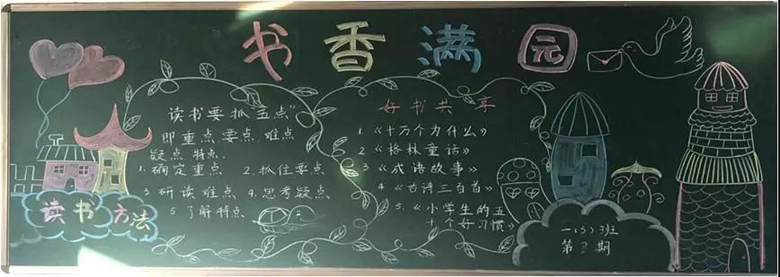 书香满园
读书要抓"五点"
即重点 要点 难点
疑点 特点.
1. 确定重点 2. 抓住要点
3 研读难点 4. 思考疑点
5 了解特点
读书方法
好书共享
1. 《十万个为什么》
2 《格林童话》
3 《成语故事》
4 《古诗三百首》
5. 《小学生的五
个好习惯》
一(5)班
第 期